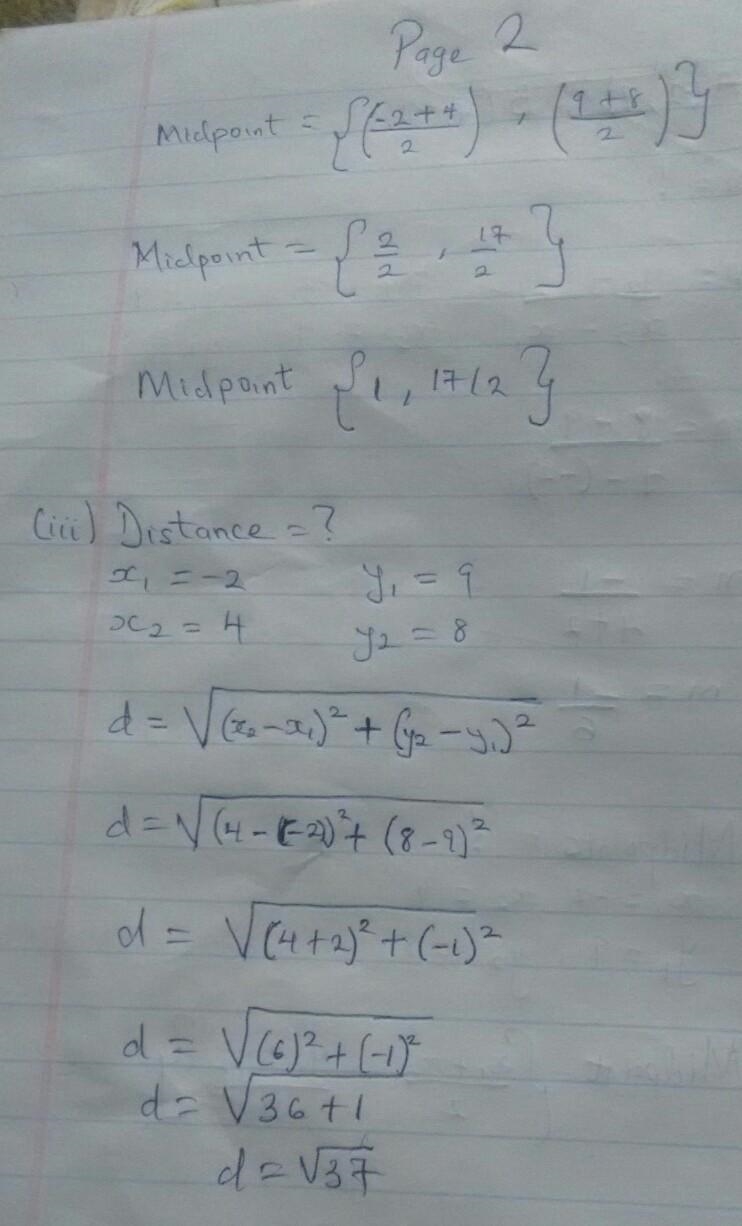 Page 2
Midpoint = {(-2+4/2), (9+8/2)}
Midpoint = {2/2, 17/2}
Midpoint {1, 17/2}
(iii) Distance = ?
x₁ = -2 y₁ = 9
x₂ = 4 y₂ = 8
d = √(x₂-x₁)² + (y₂-y₁)²
d = √(4-(-2))² + (8-9)²
d = √(4+2)² + (-1)²
d = √(6)² + (-1)²
d = √36+1
d = √37